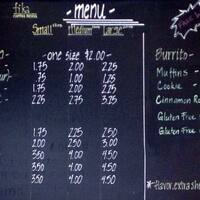 fika
- menu -
Small Medium Large
- one size $2.00 -
1.75 2.00 2.25
.75 1.00 1.25
1.75 2.00 2.25
2.25 2.75 3.25
1.75 2.25 2.50
2.00 2.50 3.00
3.50 4.00 4.50
3.50 4.00 4.50
3.50 4.00 4.50
Burrito-
Muffins -
Cookie -
Cinnamon Ro
Gluten Free
Gluten Free
*flavor, extra sho